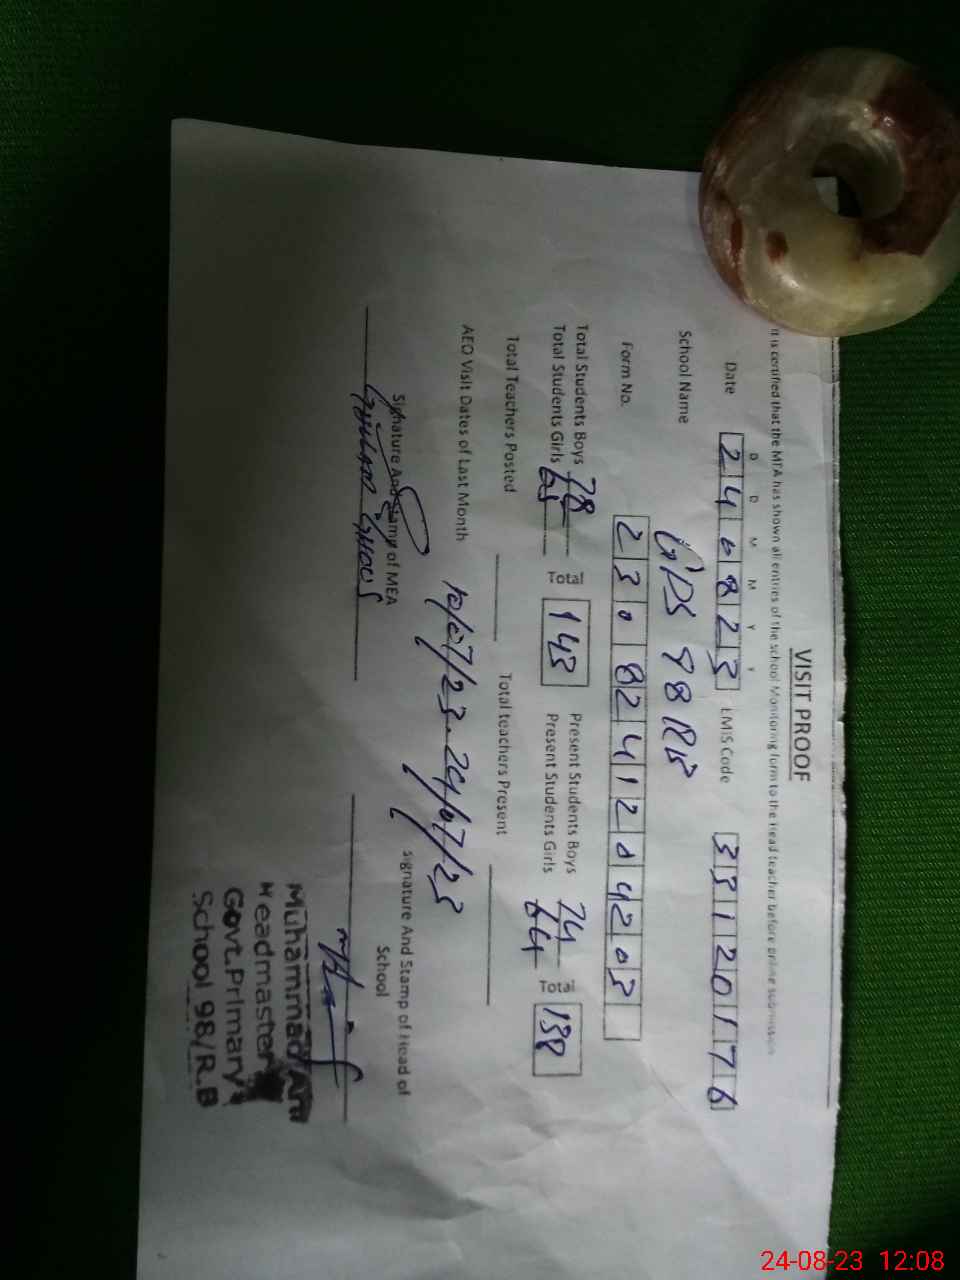 VISIT PROOF
It is certified that the MEA has shown all entries of the school Monitoring form to the Head teacher before online submission
D D M M Y Y
Date 240823 EMIS Code 33120176
School Name GPS 98 RB
Form No. 2308241204203
Total Students Boys 78 Total 143 Present Students Boys 74 Total 138
Total Students Girls 65 Present Students Girls 64
Total Teachers Posted Total teachers Present
AEO Visit Dates of Last Month 10/07/23. 24/07/23
Signature And Stamp of MEA Signature And Stamp of Head of School
Ghulam Ghous
Muhammad
Headmaster
Govt.Primary
School 98/R.B
24-08-23 12:08